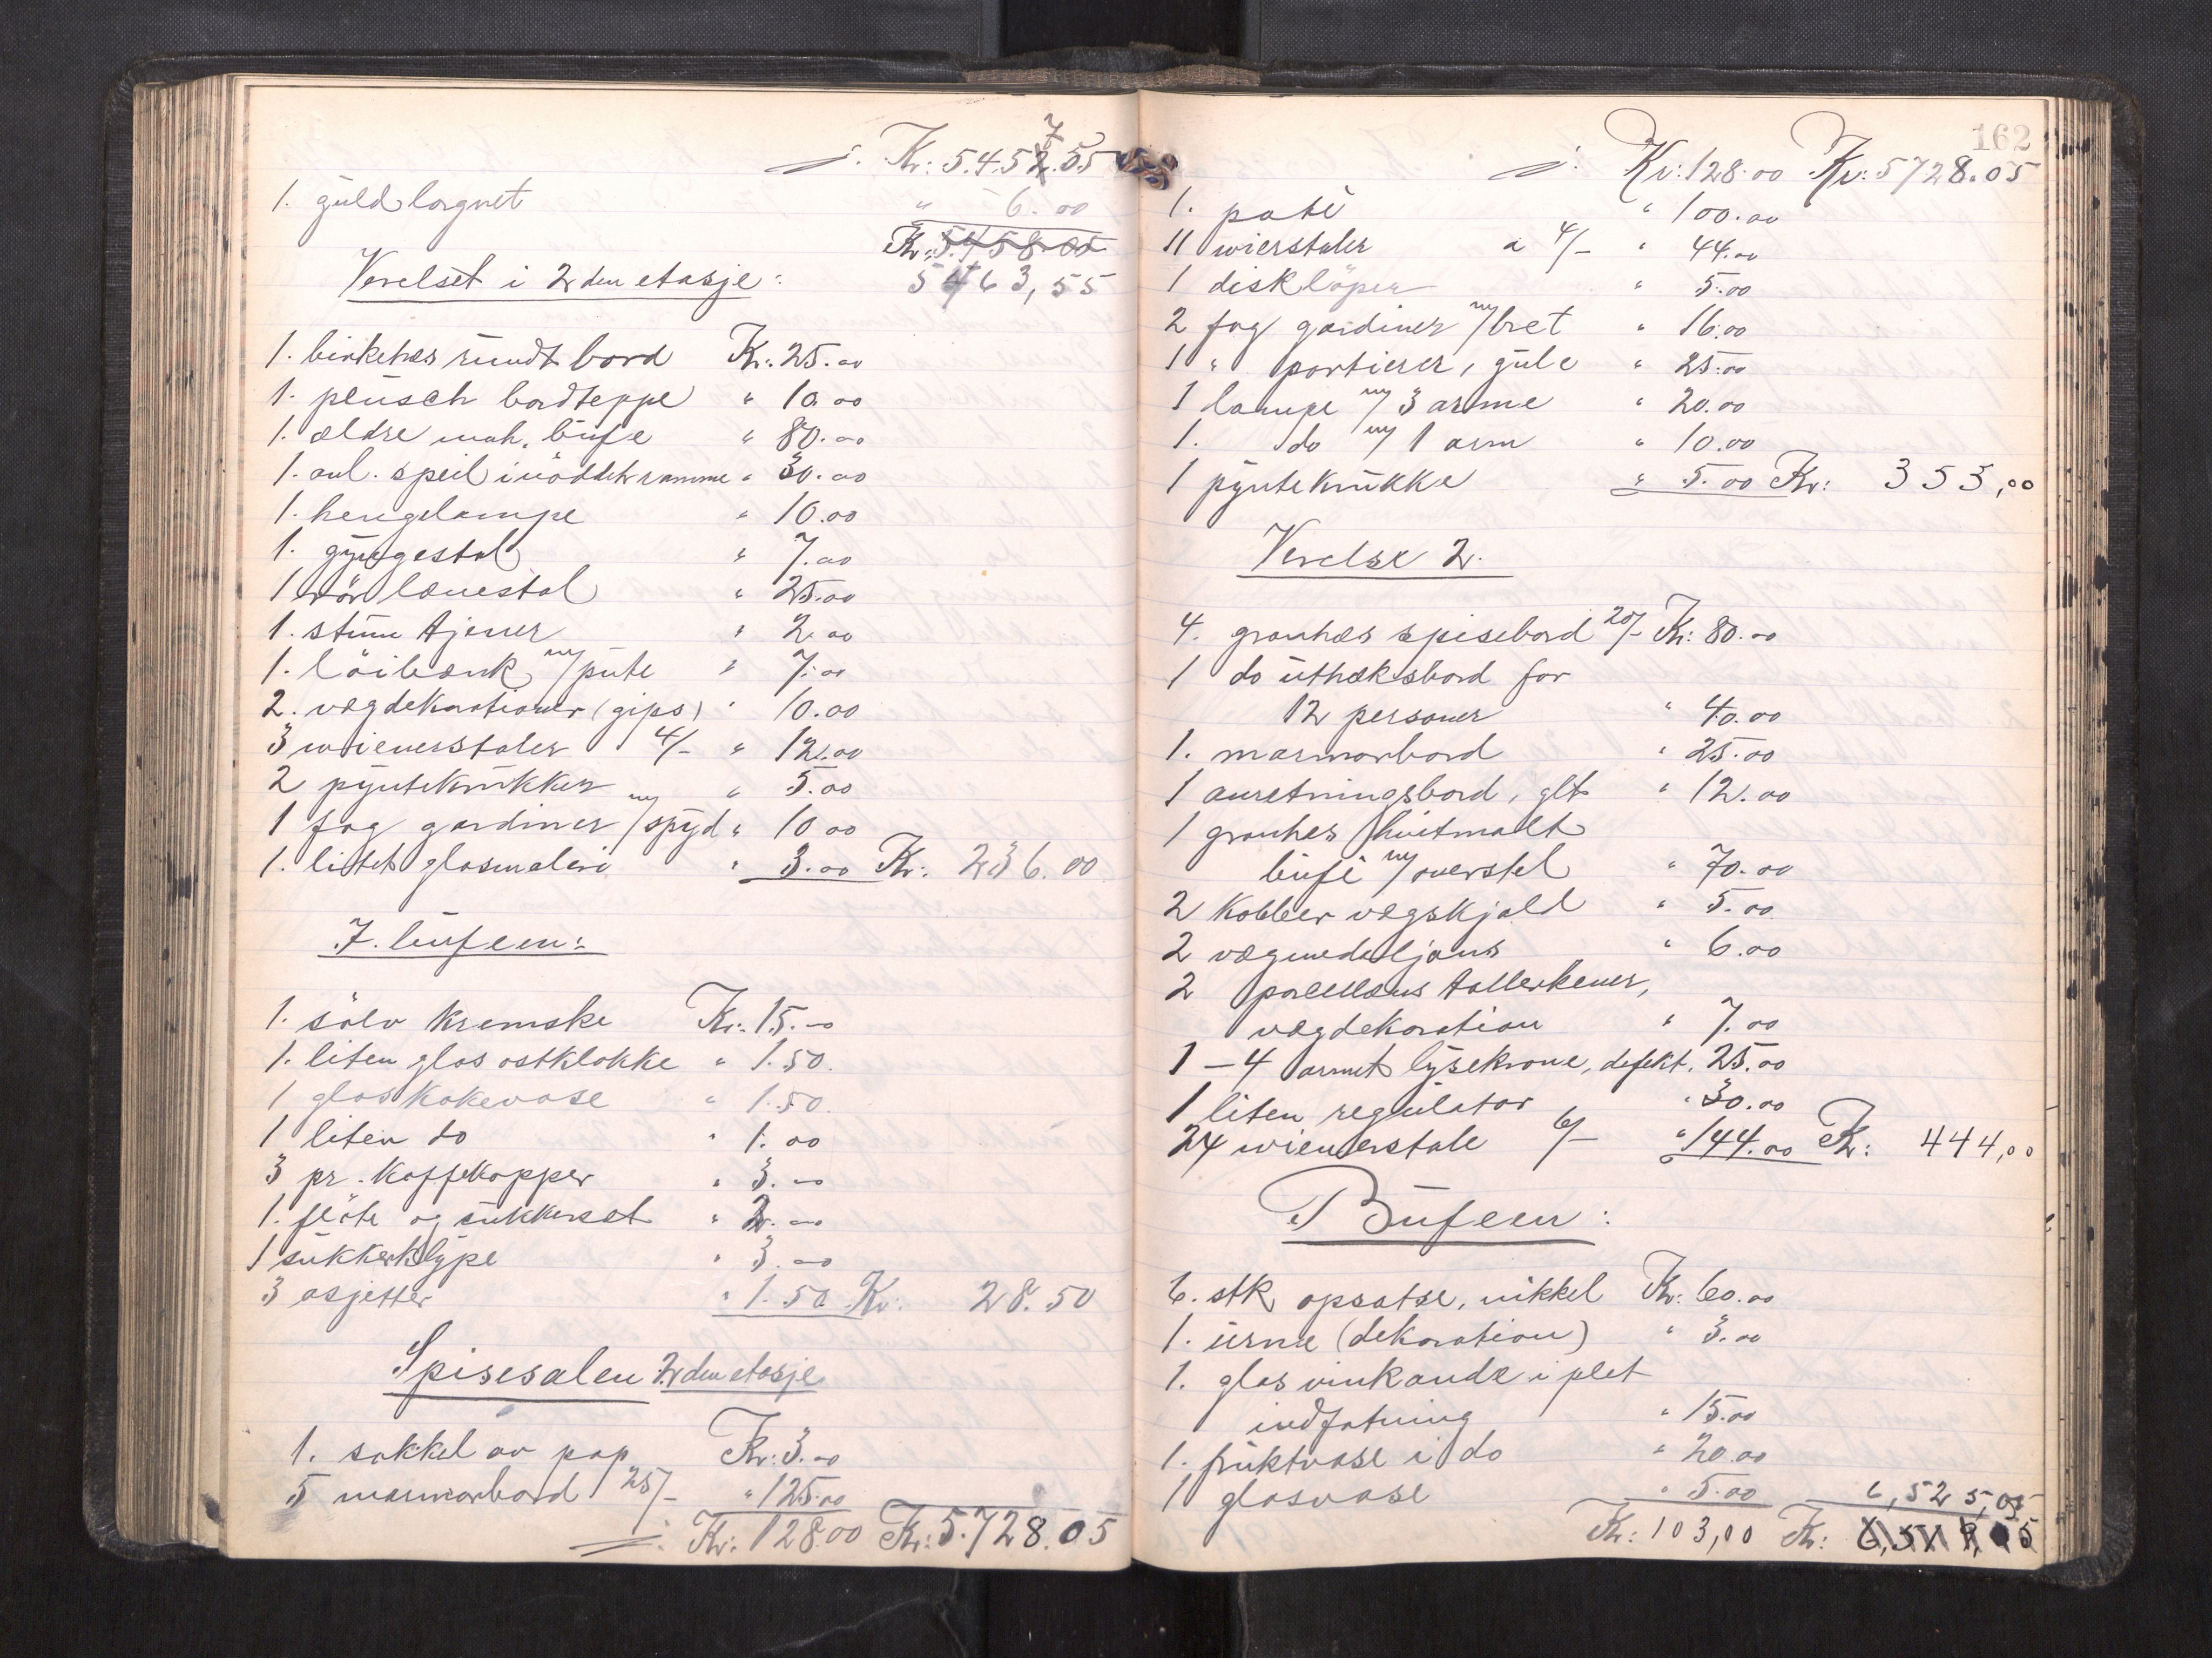 j. Kr: 5.457.55
1. guld lorgnet " 6.00
Kr: 5.458.05
5463,55
Verelset i 2den etasje:
1. birketræs rundt bord Kr. 25.00
1. plüsch bordteppe " 10.00
1. ældre mah. bufe " 80.00
1. avl. speil i nöddetr ramme " 30.00
1. hengelampe " 10.00
1. gyngestol " 7.00
1 rör lænestol " 25.00
1. stum tjener " 2.00
1. löibænk m/pute " 7.00
2. vægdekorationer (gips) " 10.00
3 wienerstoler 4/- " 12.00
2 pyntekrukker " 5.00
1 fag gardiner m/spyd " 10.00
1. litet glasmaleri " 3.00 Kr. 236.00
I. bufeen:
1. sölv kremske Kr. 15.00
1. liten glas ostklokke " 1.50
1 glas kakevase " 1.50
1 liten do " 1.00
3 pr. kaffekopper " 3.00
1. flöte og sukkerset " 2.00
1 sukkerklype " 3.00
3 asjetter " 1.50 Kr. 28.50
Spisesalen 2den etasje
1. sokkel av pap Kr: 3.00
5 marmorbord 25/- " 125.00
Kr. 128.00 Kr: 5.728.05
162
j. Kr: 128.00 Kr: 5728.05
1. pate " 100.00
11 wierstoler a 4/- " 44.00
1 disklöper " 5.00
2 fag gardiner m/bret " 16.00
1 " portierer, gule " 25.00
1 lampe m/3 arme " 20.00
1. do m/1 arm " 10.00
1 pyntekrukke " 5.00 Kr: 353,00
Verelse 2.
4. granhes spisebord 20/- Kr: 80.00
1 do uttræksbord for
12 personer " 40.00
1. marmorbord " 25.00
1 anretningsbord, glt " 12.00
1 granhes hvitmalt
bufé m/overstel " 70.00
2 kobber vægskjold " 5.00
2 vægmedaljons " 6.00
2 porcellæns tallerkener,
vægdekoration " 7.00
1 - 4 armet lysekrone, defekt. 25.00
1 liten regulator " 30.00
24 wienerstole 6/- " 144.00 Kr: 444,00
Bufeen:
6. stk opsatse, nikkel Kr: 60.00
1. urne (dekoration) " 3.00
1. glas vinkande i plet
indfatning " 15.00
1. fruktvase i do " 20.00
1 glasvase " 5.00 6,525,05
Kr: 103,00 Kr: